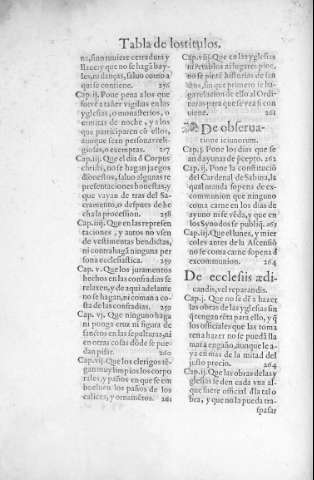 Tabla de los titulos.
na, sino tuuiere cerradura y
llaue: y que no se hagã bay-
les, ni danças, saluo como a
qui se contiene. 256
Cap. ij. Pone pena a los que
fuerẽ a tañer vigilias en las
yglesias, o monasterios, o
ermitas de noche, y a los
que participaren cõ ellos,
aunque sean personas reli-
giosas, o exemptas. 257
Cap. iij. Que el dia đ Corpus
christi, no se hagan juegos
dishonestos, saluo algunas re
presentaciones honestas, y
que vayan de tras del Sa-
cramento, o despues de he
cha la procession. 258
Cap. iiij. Que en las represen
taciones, y autos no vsen
de vestimentas bendictas,
ni contrahagã ninguna per
sona ecclesiastica. 259
Cap. v. Que los juramentos
hechos en las cofradias se
relaxen, y de aqui adelante
no se hagan, ni coman a co-
sta de las cofradias. 259
Cap. vj. Que ninguno haga
ni ponga cruz ni figura de
sanctos en las sepulturas, ni
en otras cosas dõde se pue-
dan pisar. 260
Cap. vij. Que los clerigos tẽ-
gan muy limpios los corpo
rales, y paños en que se em
bueluen los paños de los
calices, y ornamẽtos. 261
Cap. viij. Que en las yglesias
ni retablos ni lugares pios,
no se pintẽ historias de san
ctos, sin que primero se ha
ga relacion de ello al Ordi-
nario para que se vea si con
uiene. 261
De obserua-
tione ieiunorum.
Cap. j. Pone los dias que se
an de ayunas de pcepto. 262
Cap. ij. Pone la constituciõ
del Cardenal de Sabina, la
qual manda so pena de ex-
comunion que ninguno
coma carne en los dias de
ayuno ni se vẽda, y que en
los Synodos se publiq̃. 263
Cap. iij. Que el lunes, y mier
coles antes de la Ascensiõ
no se coma carne so pena đ
excomunion. 264
De ecclesiis ædi-
candis, vel reparandis.
Cap. j. Que no se dẽ a hazer
las obras de las yglesias sin
q̃ tengan rẽta para ello, y q̃
los officiales que las toma
ren a hazer no se puedã lla
mar a engaño, aunque le a-
ya en mas de la mitad del
justo precio. 264
Cap. ij. Que las obras de las y
glesias se den cada vna al
que fuere official đ la tal o
bra, y que no la pueda tra-
spasar